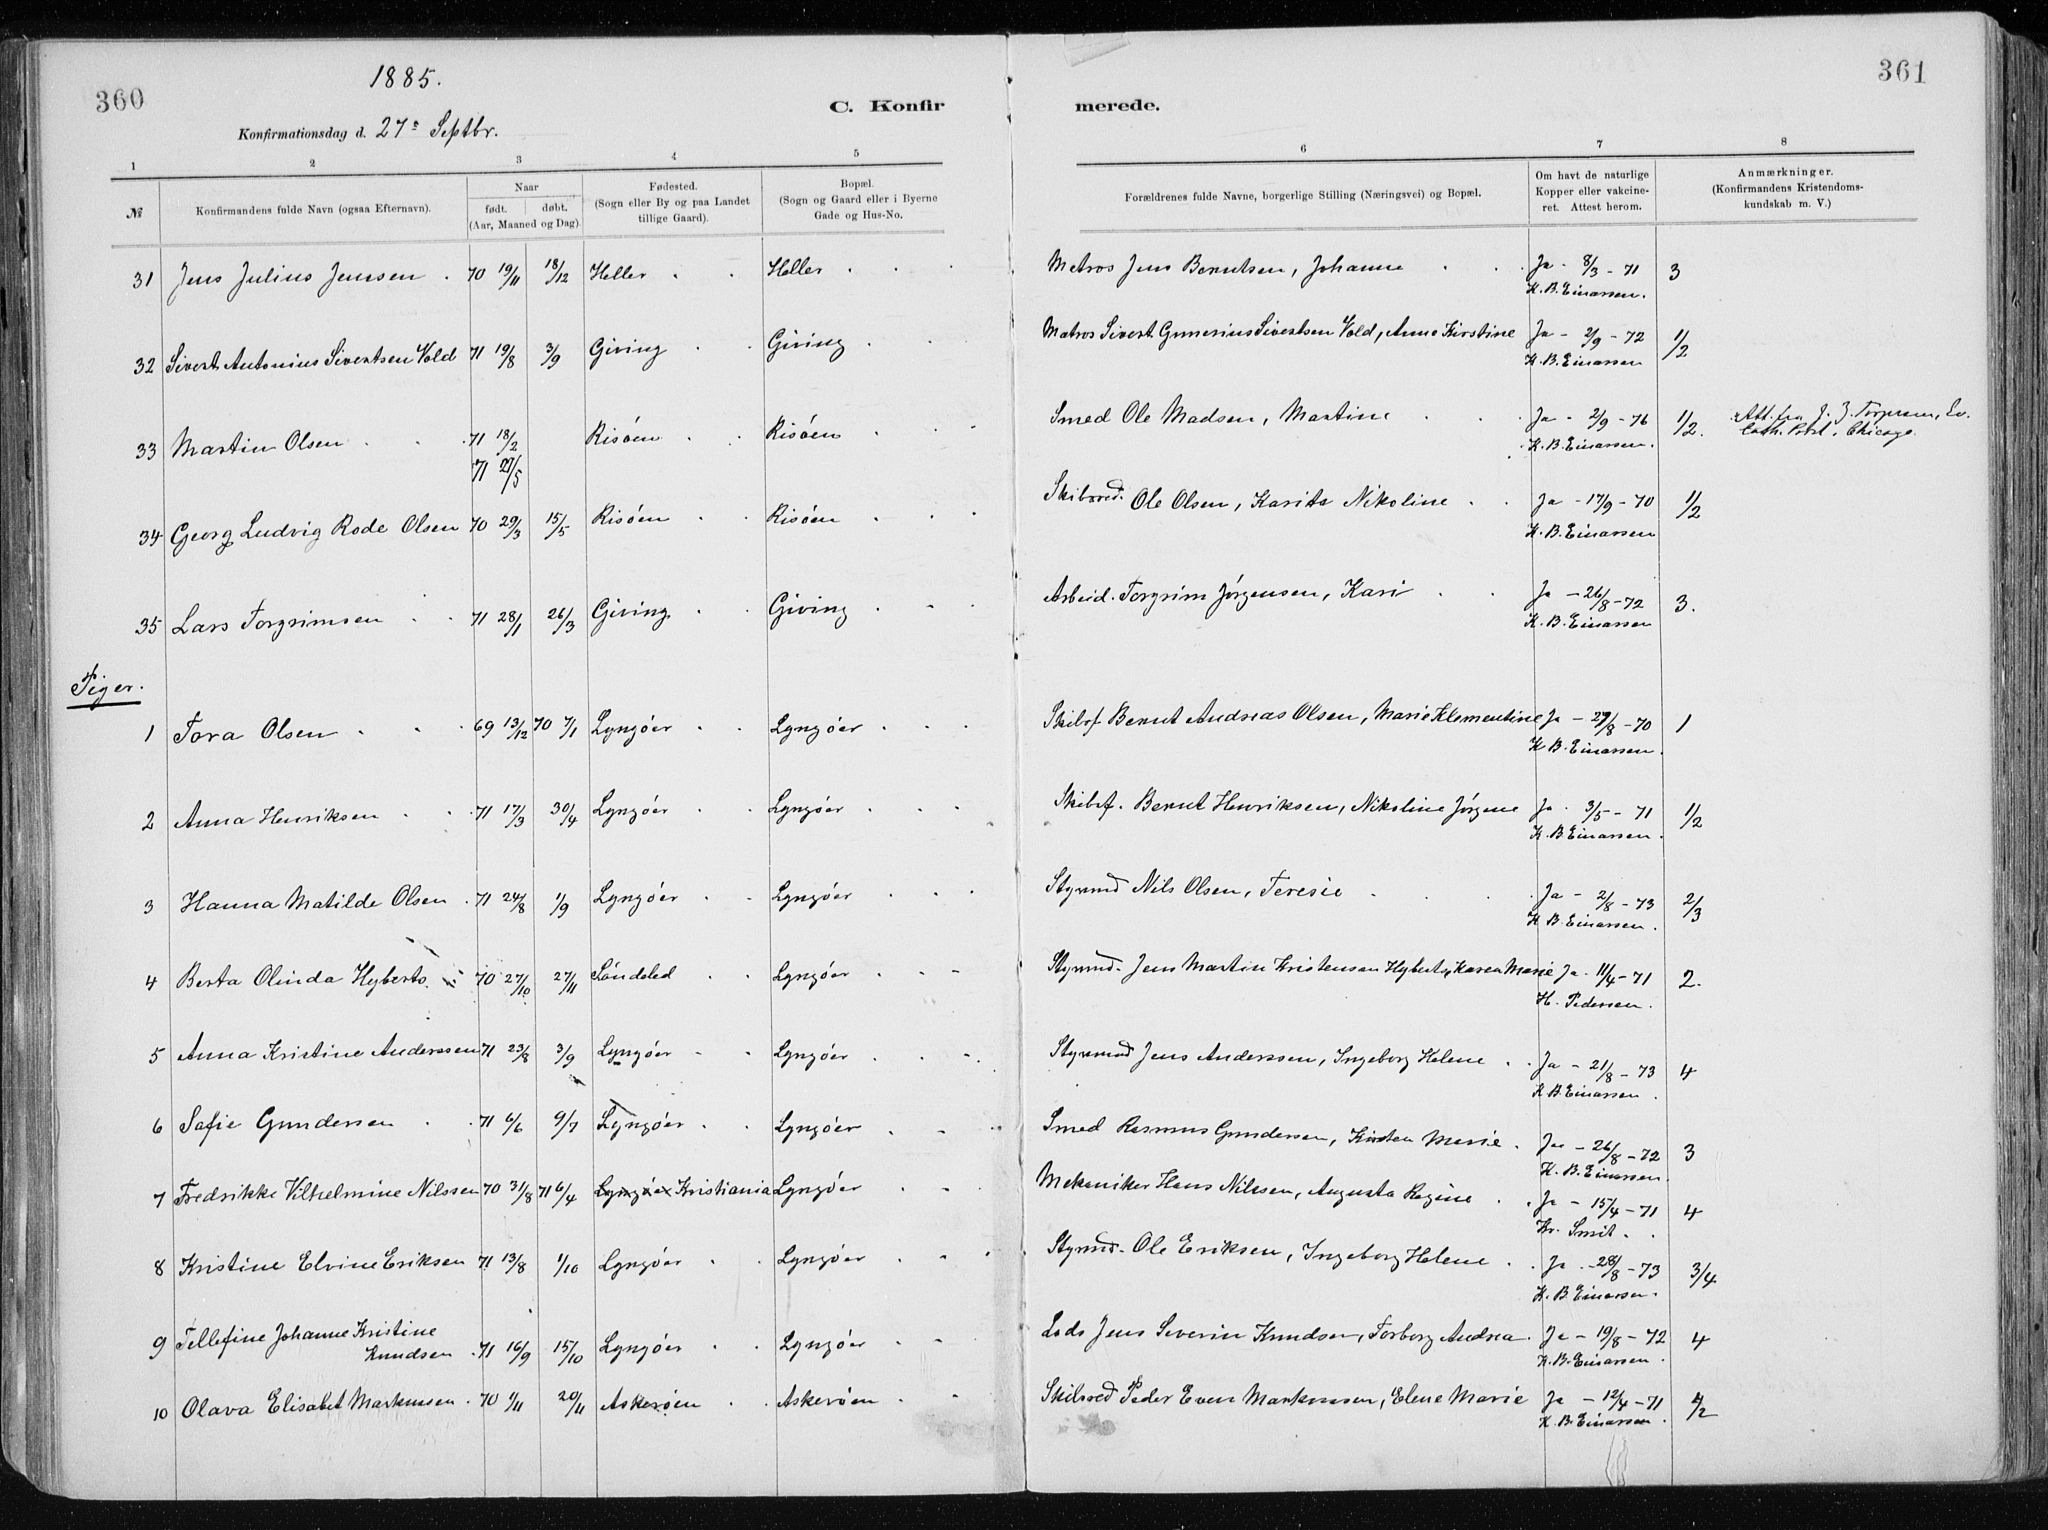 360
1885.
C. Konfir
merede.
361
Konfirmationsdag d. 27de Septbr.
1 2 3 4 5 6 7 8
№ Konfirmandens fulde Navn (ogsaa Efternavn).
Naar
født. døbt.
(Aar, Maaned og Dag).
Fødested.
(Sogn eller By og paa Landet
tillige Gaard).
Bopæl.
(Sogn og Gaard eller i Byerne
Gade og Hus-No.
Forældrenes fulde Navne, borgerlige Stilling (Næringsvei) og Bopæl.
Om havt de naturlige
Kopper eller vakcine-
ret. Attest herom.
Anmærkninger.
(Konfirmandens Kristendoms-
kundskab m. V.)
31 Jens Julius Jensen . 70 19/11 18/12 Heller . . Heller . . . Matros Jens Berntsen, Johanne . . . Ja - 8/3 - 71 3
K. B. Einarsen.
32 Sivert Antonius Sivertsen Vold 71 19/8 3/9 Giving . . Giving . . Matros Sivert Gunerius Sivertsen Vold, Anne Kirstine Ja - 2/9 - 72 1/2
K. B. Einarsen
33 Martin Olsen . . 71 18/2 Risøen . . Risøen . . . Smed Ole Madsen, Martine . . Ja - 2/9 - 76 1/2. Att. fra J. Z. Torgersen, Ev.
71 27/5 K. B. Einarsen. Luth. Præst, Chicago.
34 Georg Ludvig Rode Olsen 70 29/3 15/5 Risøen . . Risøen . . . Skibsred. Ole Olsen, Karitte Nikoline . . Ja - 17/9 - 70 1/2
K. B. Einarsen
35 Lars Torgrimsen . . 71 28/1 26/3 Giving . . Giving . . . Arbeid. Torgrim Jørgensen, Kari . . Ja - 26/8 - 72 3.
K. B. Einarsen
Piger.
1 Tora Olsen . . . 69 13/12 70 7/1 Lyngøer . . Lyngøer . . . Skibsf. Bernt Andreas Olsen, Marie Klementine Ja - 27/8 - 70 1
K B. Einarsen.
2 Anna Henriksen . . 71 17/3 30/4 Lyngøer . . Lyngøer . . . Skibsf. Bernt Henriksen, Nikoline Jørgine Ja . 3/5 - 71 1/2
K. B. Einarsen.
3 Hanna Matilde Olsen . 71 24/8 1/9 Lyngøer . . Lyngøer . . . Styrmd Nils Olsen, Teresie . . . Ja - 2/8 - 73 2/3
K B. Einarsen.
4 Berta Olinda Hyberts . 70 27/10 27/11 Søndeled . . Lyngøer . . - Styrmd. Jens Martin Kristensen Hyberts, Karen Marie Ja - 11/4 - 71 2.
H. Pedersen.
5 Anna Kristine Anderssen 71 23/8 3/9 Lyngøer - - Lyngøer . . - Styrmand Jens Anderssen, Ingeborg Helene . . Ja - 21/8 - 73 4
K B. Einarsen.
6 Sofie Gundersen . . 71 6/6 9/7 Lyngøer . . Lyngøer . . Smed Rasmus Gundersen, Kirsten Marie . Ja - 26/8 - 72 3
K. B. Einarsen.
7 Fredrikke Vilhelmine Nilssen 70 31/8 71 6/4 Lyngøer Kristiania Lyngøer . . Mekaniker Hans Nilssen, Augusta Regine . . Ja - 15/4 - 71 4
Kr. Smit . .
8 Kristine Elvine Eriksen 71 13/8 1/10 Lyngøer . . Lyngøer . . . Styrmd. Ole Eriksen, Ingeborg Helene . . Ja - 28/8 - 73 3/4
K. B. Einarsen.
9 Tellefine Johanne Kristine
Knudsen . 71 16/9 15/10 Lyngøer . . Lyngøer . . Lods Jens Severin Knudsen, Torborg Andrea . Ja - 19/8 - 72 4
K. B. Einarsen.
10 Olava Elisabet Markussen . 70 1/11 20/11 Askerøen . . Askerøen . . Skibsred Peder Even Markussen, Elene Marie Ja - 12/4 - 71
K. B. Einarsen.